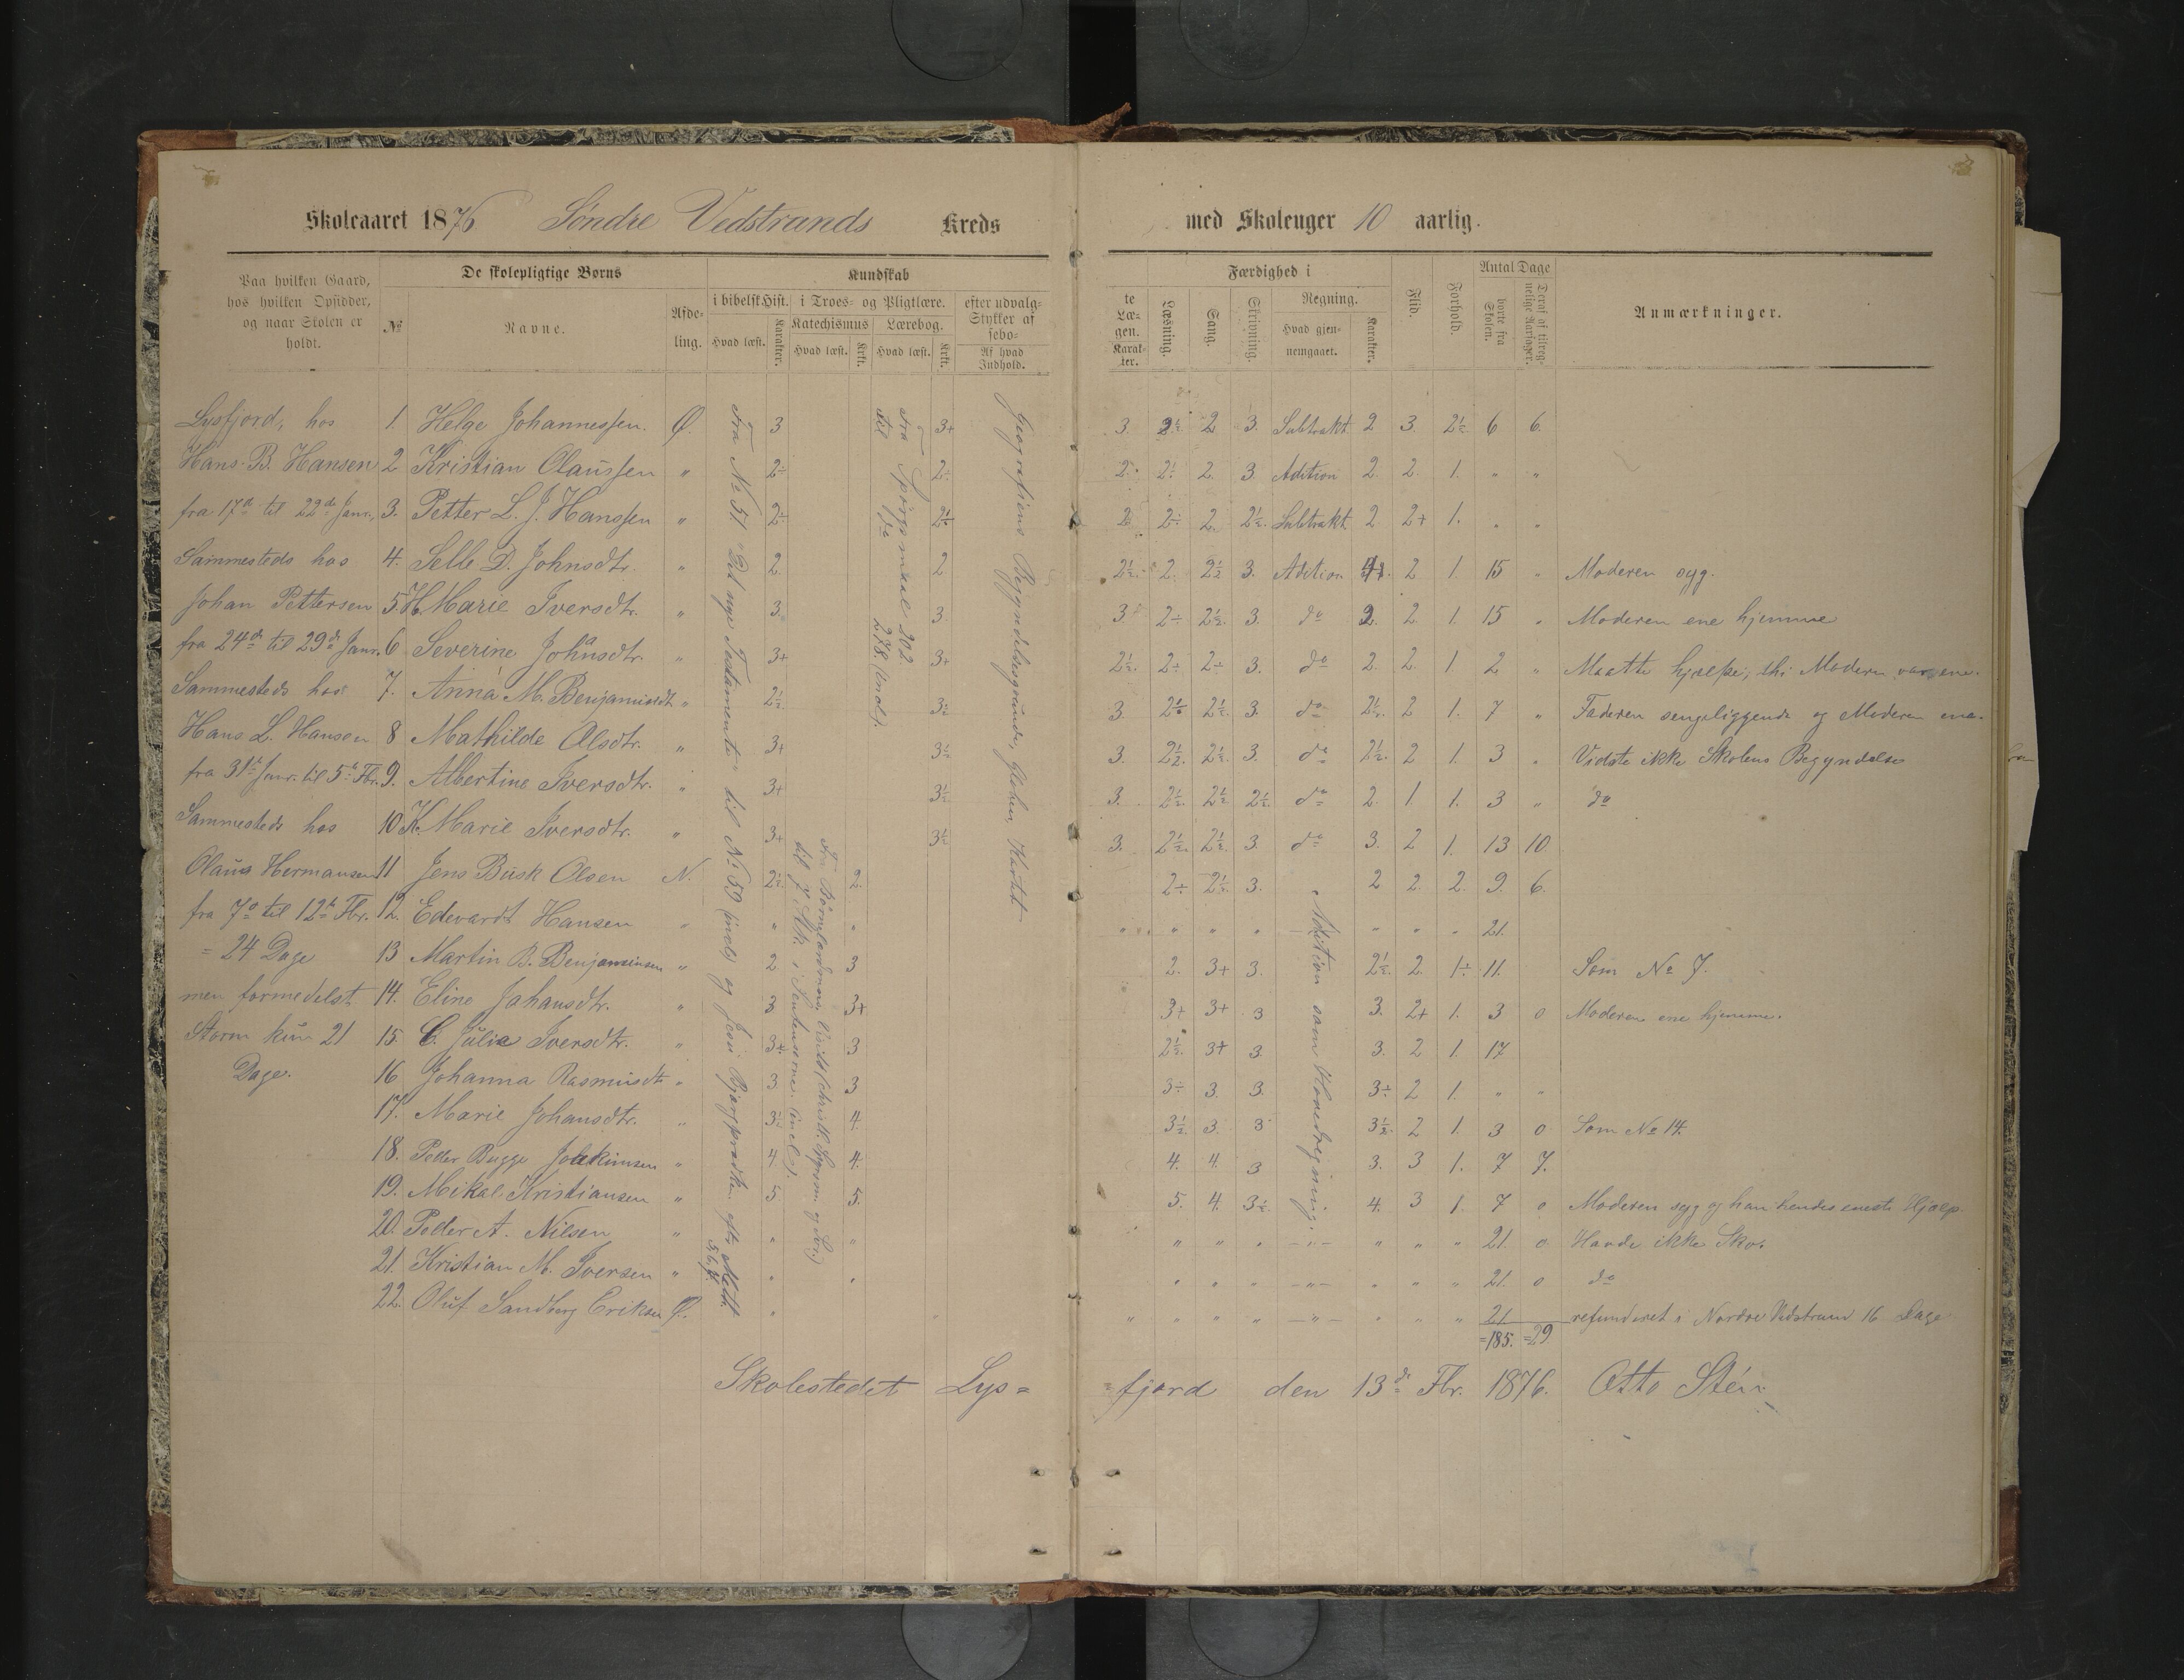 Skoleaaret 1876 Søndre Vedstrands Kreds med Skoleuger 10 aarlig.
Paa hvilken Gaard, hos hvilken Opsidder, og naar Skolen er holdt.
De skolepligtige Børns
№ Navne. Afdeling.
Kundskab
i bibelsk Hist. i Troes- og Pligtlære. efter udvalg-
Stykker af
Katechismus Lærebog.
Hvad læst. Karakter. Hvad læst. Krkt. Hvad læst. Krkt. Af hvad Indhold.
te Læ-
gen.
Karakter.
Færdighed i
Læsning. Sang. Skrivning. Regning.
Hvad gjennemgaaet. Karakter.
Flid. Forhold.
Antal Dage
borte fra Skolen.
Anmærkninger.
Lysfjord, hos
Hans B. Hansen
fra 17de til 22de Janr.,
Sammesteds hos
Johan Pettersen
fra 24de til 29de Janr.
Sammesteds hos
Hans L. Hansen
fra 31te Janr. til 5te Fbr.
Sammesteds hos
Olaus Hermansen
fra 7de til 12te Fbr.
= 24 Dage
men formedelst
Storm kun 21
Dage.
Fra № 51 Det nye Testamente til № 59
Fra Spørgsmaal 202
til 278
Geografiens Begyndelsesgrunde, Globen, Kartet
1. Helge Johannessen. Ø. 3 3+ 3. 2½ 2 3. Subtrakt 2 3. 2½ 6 6.
2 Kristian Claussen " 2÷ 2÷ 2. 2÷ 2. 3 Adition 2. 2. 1. " "
3. Petter L. J. Hanssen " 2÷ 2½ 2 2÷ 2. 2½. Subtrakt 2 2+ 1. " "
4. Selle D. Johnsdtr. " 2. 2 2½. 2. 2½ 3. Adition 2 1. 15 " Moderen syg.
5. H. Marie Iversdtr. " 3. 3 3÷ 2÷ 2½. 3. do 2. 2. 1. 15 " Moderen ene hjemme
6 Severine Johansdtr. " 3+ 3+ 2½. 2÷ 2÷ 3. do 2. 2. 1 2 " Maatte hjælpe, thi Moderen var ene.
7. Anna M. Benjaminsdt " 2½. 3½ 3. 2½ 2½. 3. do 2½. 2 1. 7 " Faderen sengeliggende og Moderen ene.
8 Mathilde Olsdtr. " 3+ 3½ 3. 2½. 2½. 3. do 2½. 2 1. 3 " Vidste ikke Skolens Begyndelse
9. Albertine Iversdtr. " 3+ 3½. 3. 2½. 2½ 2½. do 2. 1. 1. 3 " do
10 K. Marie Iversdtr. " 3+ 3½ 3. 2½. 2½. 3. do 3. 2 1. 13 10
11 Jens Busk Olsen N. 2½ 2. 2÷ 2½. 3. 2 2. 2. 9. 6.
12. Edevardt Hansen " " " " " " " " " " 21.
13 Martin B. Benjaminsen " 2 3 2. 3+ 3. 2½. 2. 1÷ 11. Som № 7.
14. Eline Johansdtr. " 3 3+ 3+ 3+ 3 3. 2+ 1. 3 0 Moderen ene hjemme.
15. C. Julie Iversdtr. " 3+ 3 2½. 3+ 3. 3. 2 1. 17
16 Johanna Rasmusdt " 3 3 3÷ 3. 3. 3÷ 2 1. " "
17. Marie Johansdtr. " 3½ 4. 3½. 3. 3 3½. 2 1. 3 0 Som № 14.
18. Peder Bugge Joakimsen " 4 4. 4. 4. 3 3. 3 1. 7 7.
19. Mikal Kristiansen " 5 5. 5. 4. 3½. 4. 3 1. 7 0 Moderen syg og han hendes eneste Hjælp
20. Peder A. Nilsen " " " " " " " " " " 21. 0 Havde ikke Sko.
21. Kristian M. Iversen " " " " " " " " " " 21. 0 do
22. Oluf Sandberg Eriksen Ø. " " " " " " " " " 21 refunderet i Nordre Vedstrand 16 Dage
=185. =29
Adition som Hovedregning.
Skolestedet Lys=
=fjord den 13de Fbr. 1876. Otto Stén.